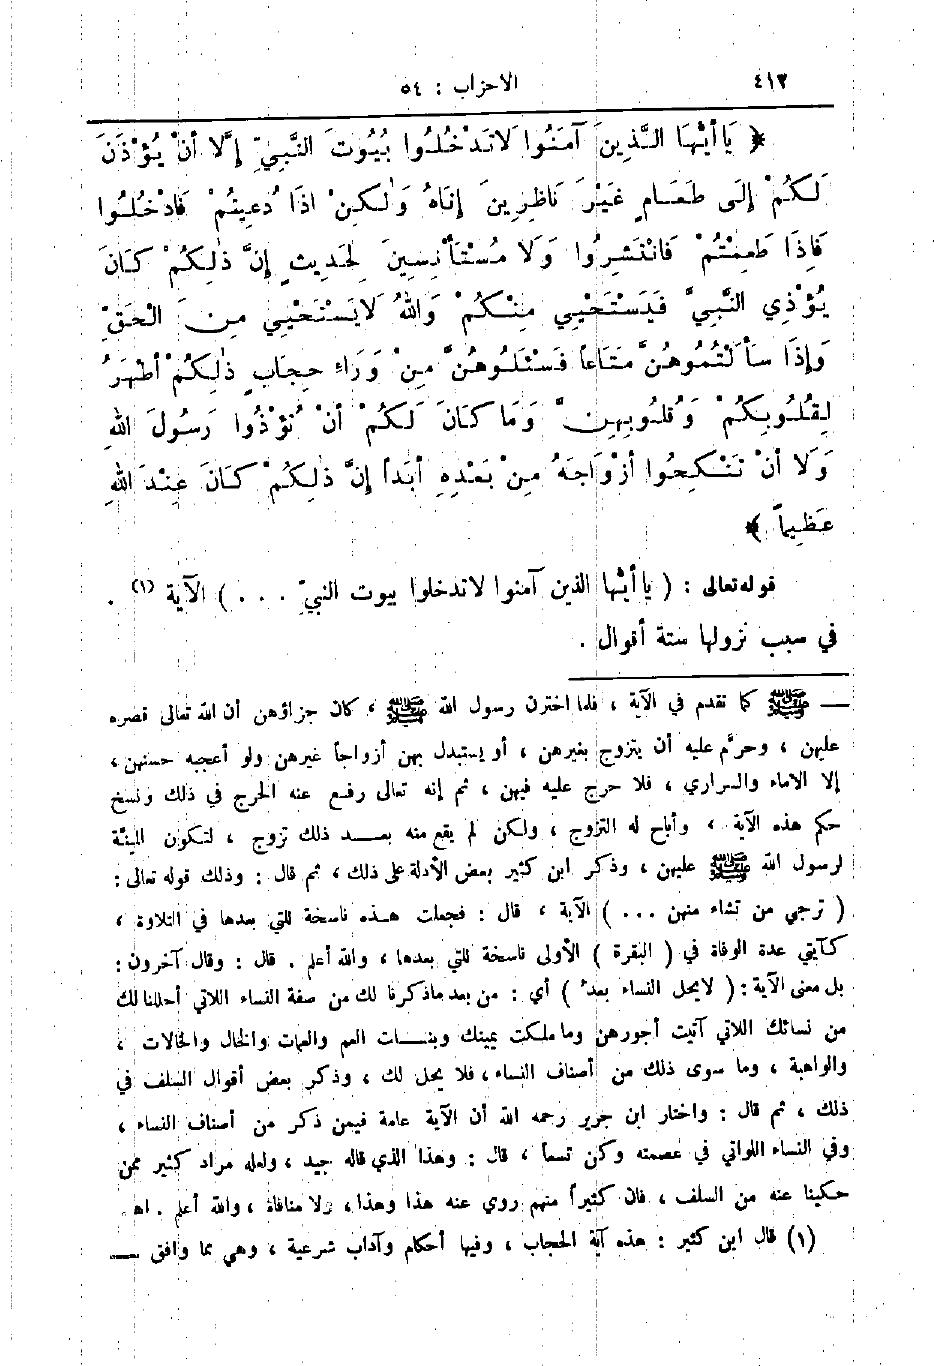 ٤١٣ الاحزاب : ٥٤
﴿ يَا أَيُّهَا الَّذِينَ آمَنُوا لَاتَدْخُلُوا بُيُوتَ النَّبِيِّ إِلَّا أَنْ يُؤْذَنَ
لَكُمْ إِلَى طَعَامٍ غَيْرَ نَاظِرِينَ إِنَاهُ وَلٰكِنْ اذَا دُعِيتُمْ فَادْخُلُوا
فَإِذَا طَعِمْتُمْ فَانْتَشِرُوا وَلَا مُسْتَأْنِسِينَ لِحَدِيثٍ إِنَّ ذٰلِكُمْ كَانَ
يُؤْذِي النَّبِيَّ فَيَسْتَحْيِي مِنْكُمْ وَاللهُ لَايَسْتَحْيِي مِنَ الْحَقِّ
وَإِذَا سَأَلْتُمُوهُنَّ مَتَاعاً فَسْئَلُوهُنَّ مِنْ وَرَاءِ حِجَابٍ ذٰلِكُمْ أَطْهَرُ
لِقُلُوبِكُمْ وَقُلُوبِهِنَّ وَمَا كَانَ لَكُمْ أَنْ تُؤْذُوا رَسُولَ اللهِ
وَلَا أَنْ تَنْكِحُوا أَزْوَاجَهُ مِنْ بَعْدِهِ أَبَداً إِنَّ ذٰلِكُمْ كَانَ عِنْدَ اللهِ
عَظِيماً ﴾
قوله تعالى : ( يا أيُّها الذين آمنوا لاتدخلوا بيوت النبيِّ . . . ) الآية (١) .
في سبب نزولها ستة أقوال .
— ﷺ كما تقدم في الآية ، فلما اخترن رسول الله ﷺ ، كان جزاؤهن أن الله تعالى قصره
عليهن ، وحرَّم عليه أن يتزوج بغيرهن ، أو يستبدل بهن أزواجاً غيرهن ولو أعجبه حسنهن ،
إلا الاماء والسراري ، فلا حرج عليه فيهن ، ثم إنه تعالى رفع عنه الحرج في ذلك ونسخ
حكم هذه الآية ، وأباح له التزوج ، ولكن لم يقع منه بعد ذلك تزوج ، لتكون المنة
لرسول الله ﷺ عليهن ، وذكر ابن كثير بعض الأدلة على ذلك ، ثم قال : وذلك قوله تعالى :
( ترجي من تشاء منهن ... ) الآية ، قال : فجعلت هذه ناسخة للتي بعدها في التلاوة ،
كآيتي عدة الوفاة في ( البقرة ) الأولى ناسخة للتي بعدها ، والله أعلم . قال : وقال آخرون :
بل معنى الآية : ( لايحل النساء بعدُ ) أي : من بعد ماذكرنا لك من صفة النساء اللاتي أحللنا لك
من نسائك اللاتي آتيت أجورهن وما ملكت يمينك وبنات العم والعمات والخال والخالات ،
والواهبة ، وما سوى ذلك من أصناف النساء ، فلا يحل لك ، وذكر بعض أقوال السلف في
ذلك ، ثم قال : واختار ابن جرير رحمه الله أن الآية عامة فيمن ذكر من أصناف النساء ،
وفي النساء اللواتي في عصمته وكن تسعاً ، قال : وهذا الذي قاله جيد ، ولعله مراد كثير ممن
حكينا عنه من السلف ، فان كثيراً منهم روي عنه هذا وهذا ، ولا منافاة ، والله أعلم . اهـ
(١) قال ابن كثير : هذه آية الحجاب ، وفيها أحكام وآداب شرعية ، وهي مما وافق —